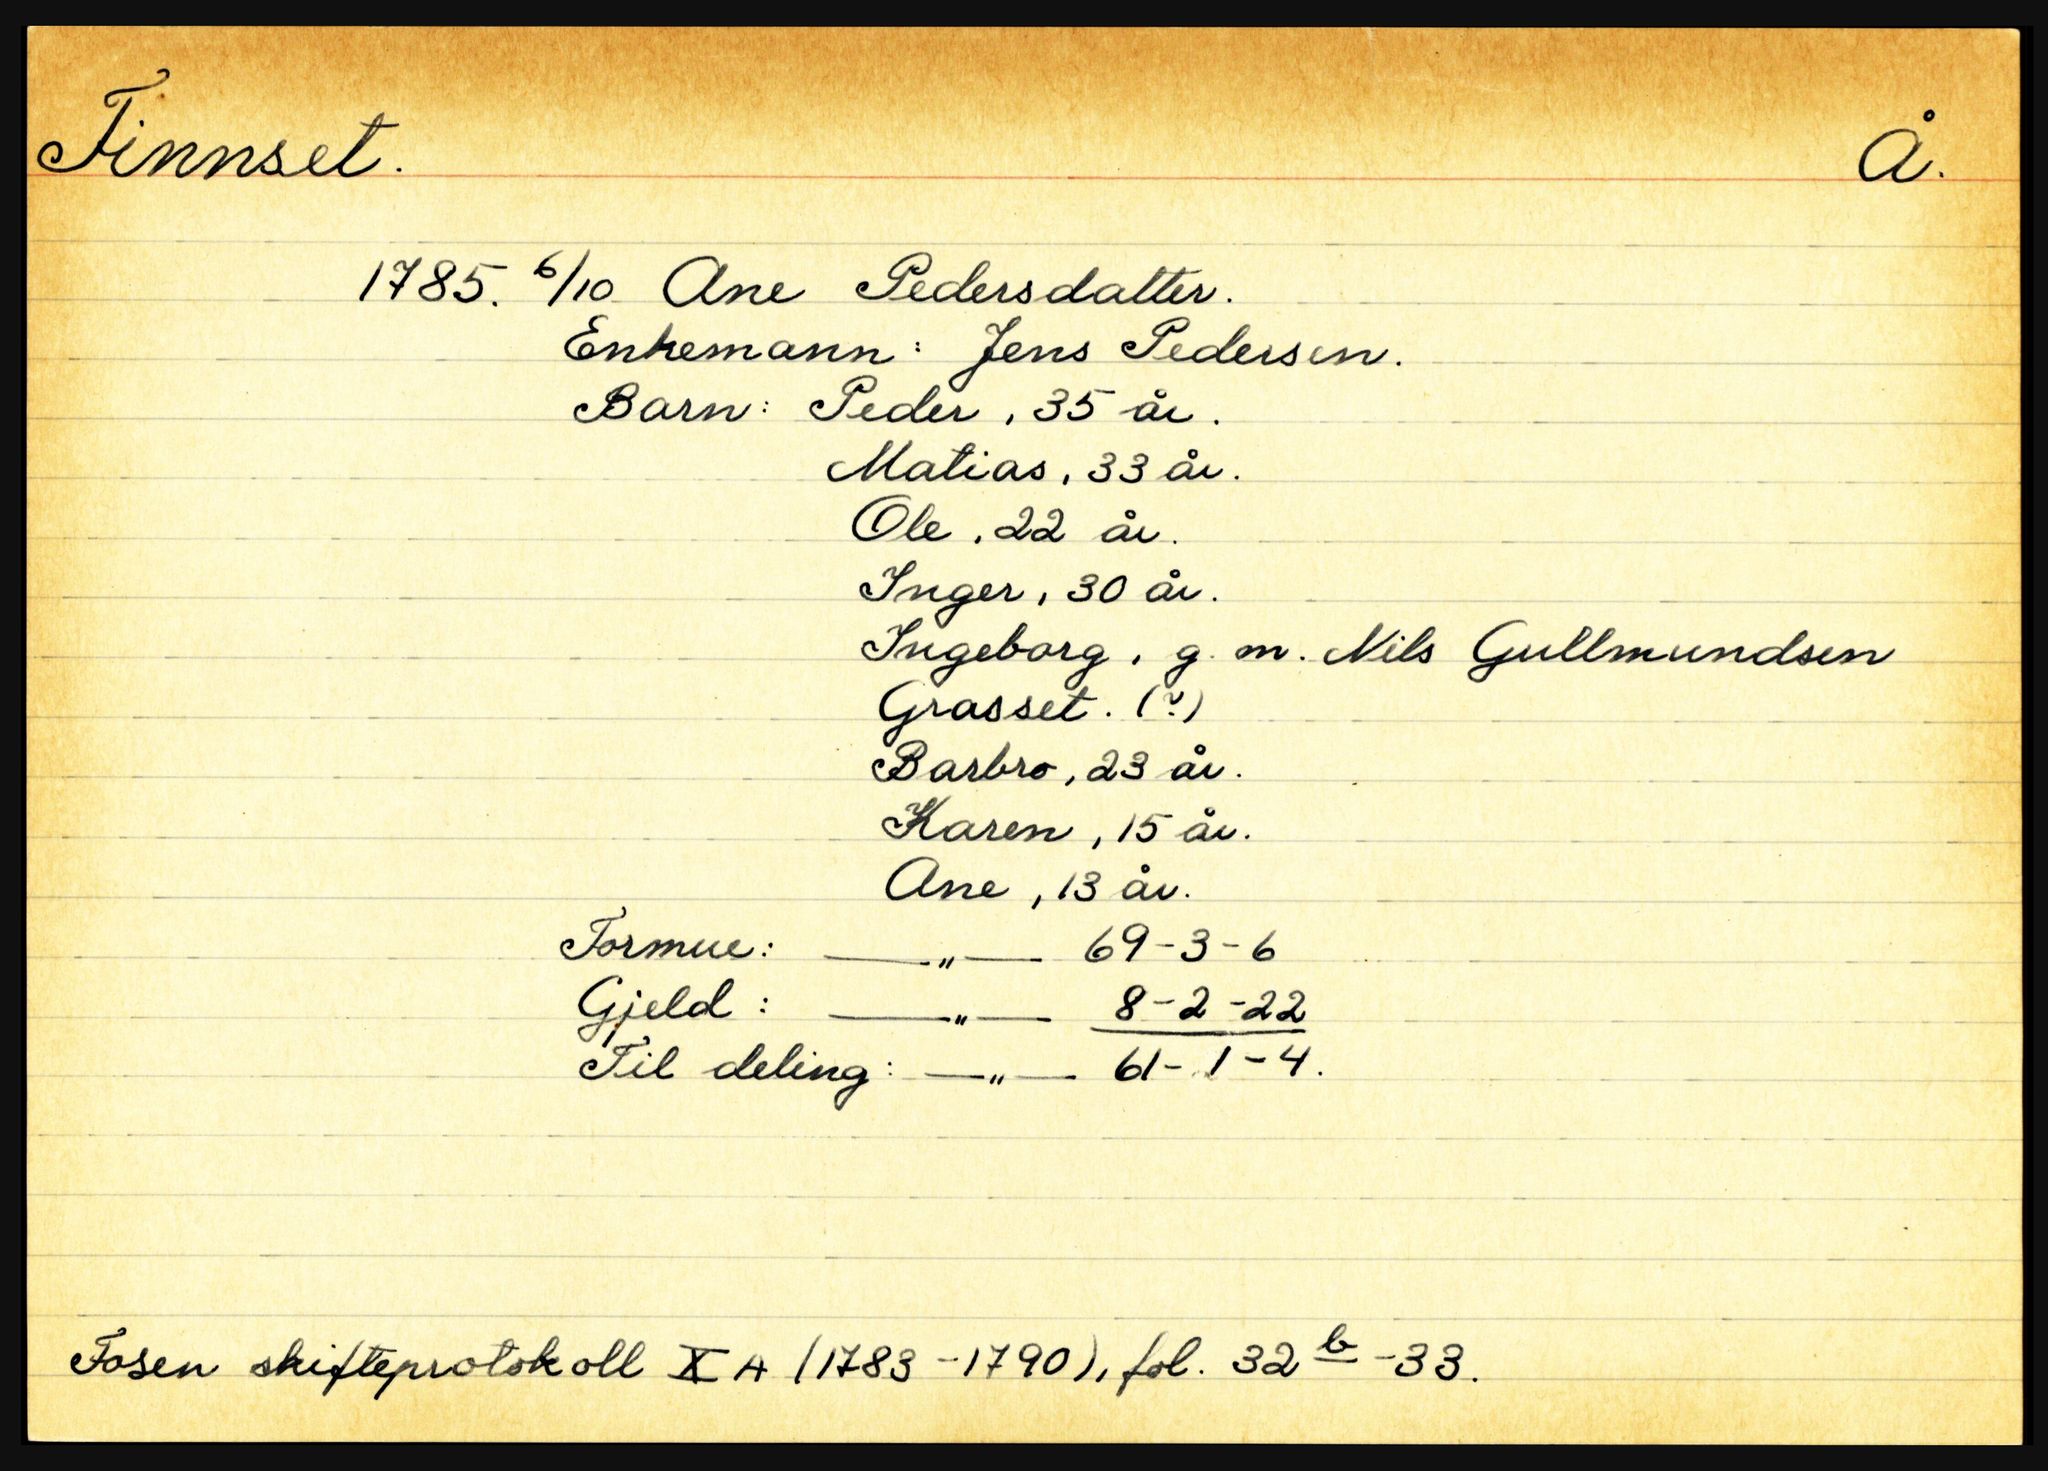 Finnset. Å.
1785. 6/10 Ane Pedersdatter.
Enkemann: Jens Pedersen.
Barn: Peder, 35 år.
Matias, 33 år.
Ole, 22 år.
Inger, 30 år.
Ingeborg, g. m. Nils Gullmundsen
Grasset. (?)
Barbro, 23 år.
Karen, 15 år.
Ane, 13 år.
Formue: —"— 69-3-6
Gjeld: —"— 8-2-22
Til deling: —"— 61-1-4.
Fosen skifteprotokoll X A (1783-1790), fol. 32 b -33.